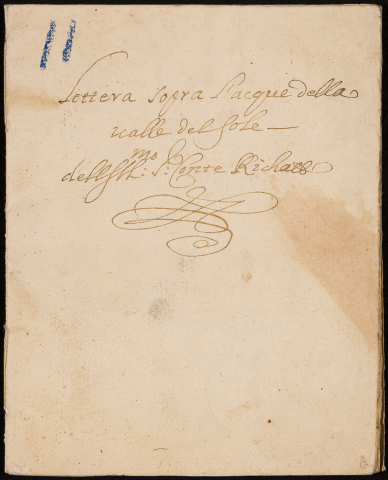 11
Lettera sopra l'acque della
valle del sole
dell Ill:mo S: Conte